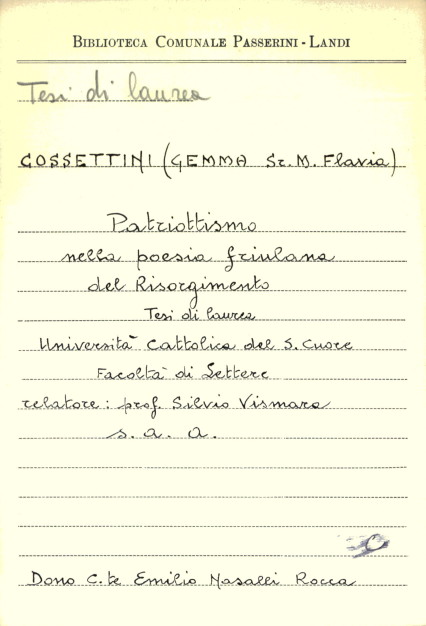 BIBLIOTECA COMUNALE PASSERINI - LANDI
Tesi di laurea
COSSETTINI (GEMMA Sr. M. Flavia)
Patriottismo
nella poesia friulana
del Risorgimento
Tesi di laurea
Università Cattolica del S. Cuore
Facoltà di Lettere
relatore: prof. Silvio Vismara
s. a. a.
Dono C.te Emilio Nasalli Rocca